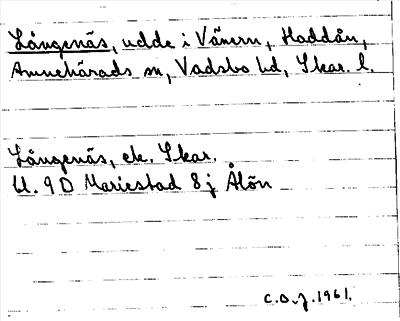 Långenäs, udde i Vänern, Haddån,
Amnehärads sn, Vadsbo hd, Skar. l.
Långenäs, ek. Skar.
Bl. 9D Mariestad 8j Ålön
C.O.J. 1961.